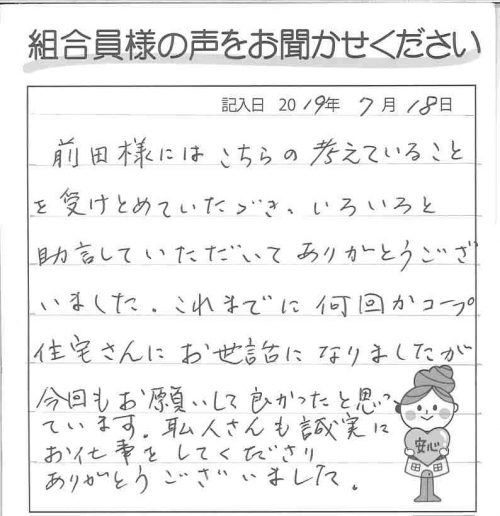 組合員様の声をお聞かせください
記入日 2019年 7月 18日
前田様にはこちらの考えていること
を受けとめていただき、いろいろと
助言していただいてありがとうござ
いました。これまでに何回かコープ
住宅さんにお世話になりましたが
今回もお願いして良かったと思っ
ています。職人さんも誠実に
お仕事をしてくださり
ありがとうございました。
安心